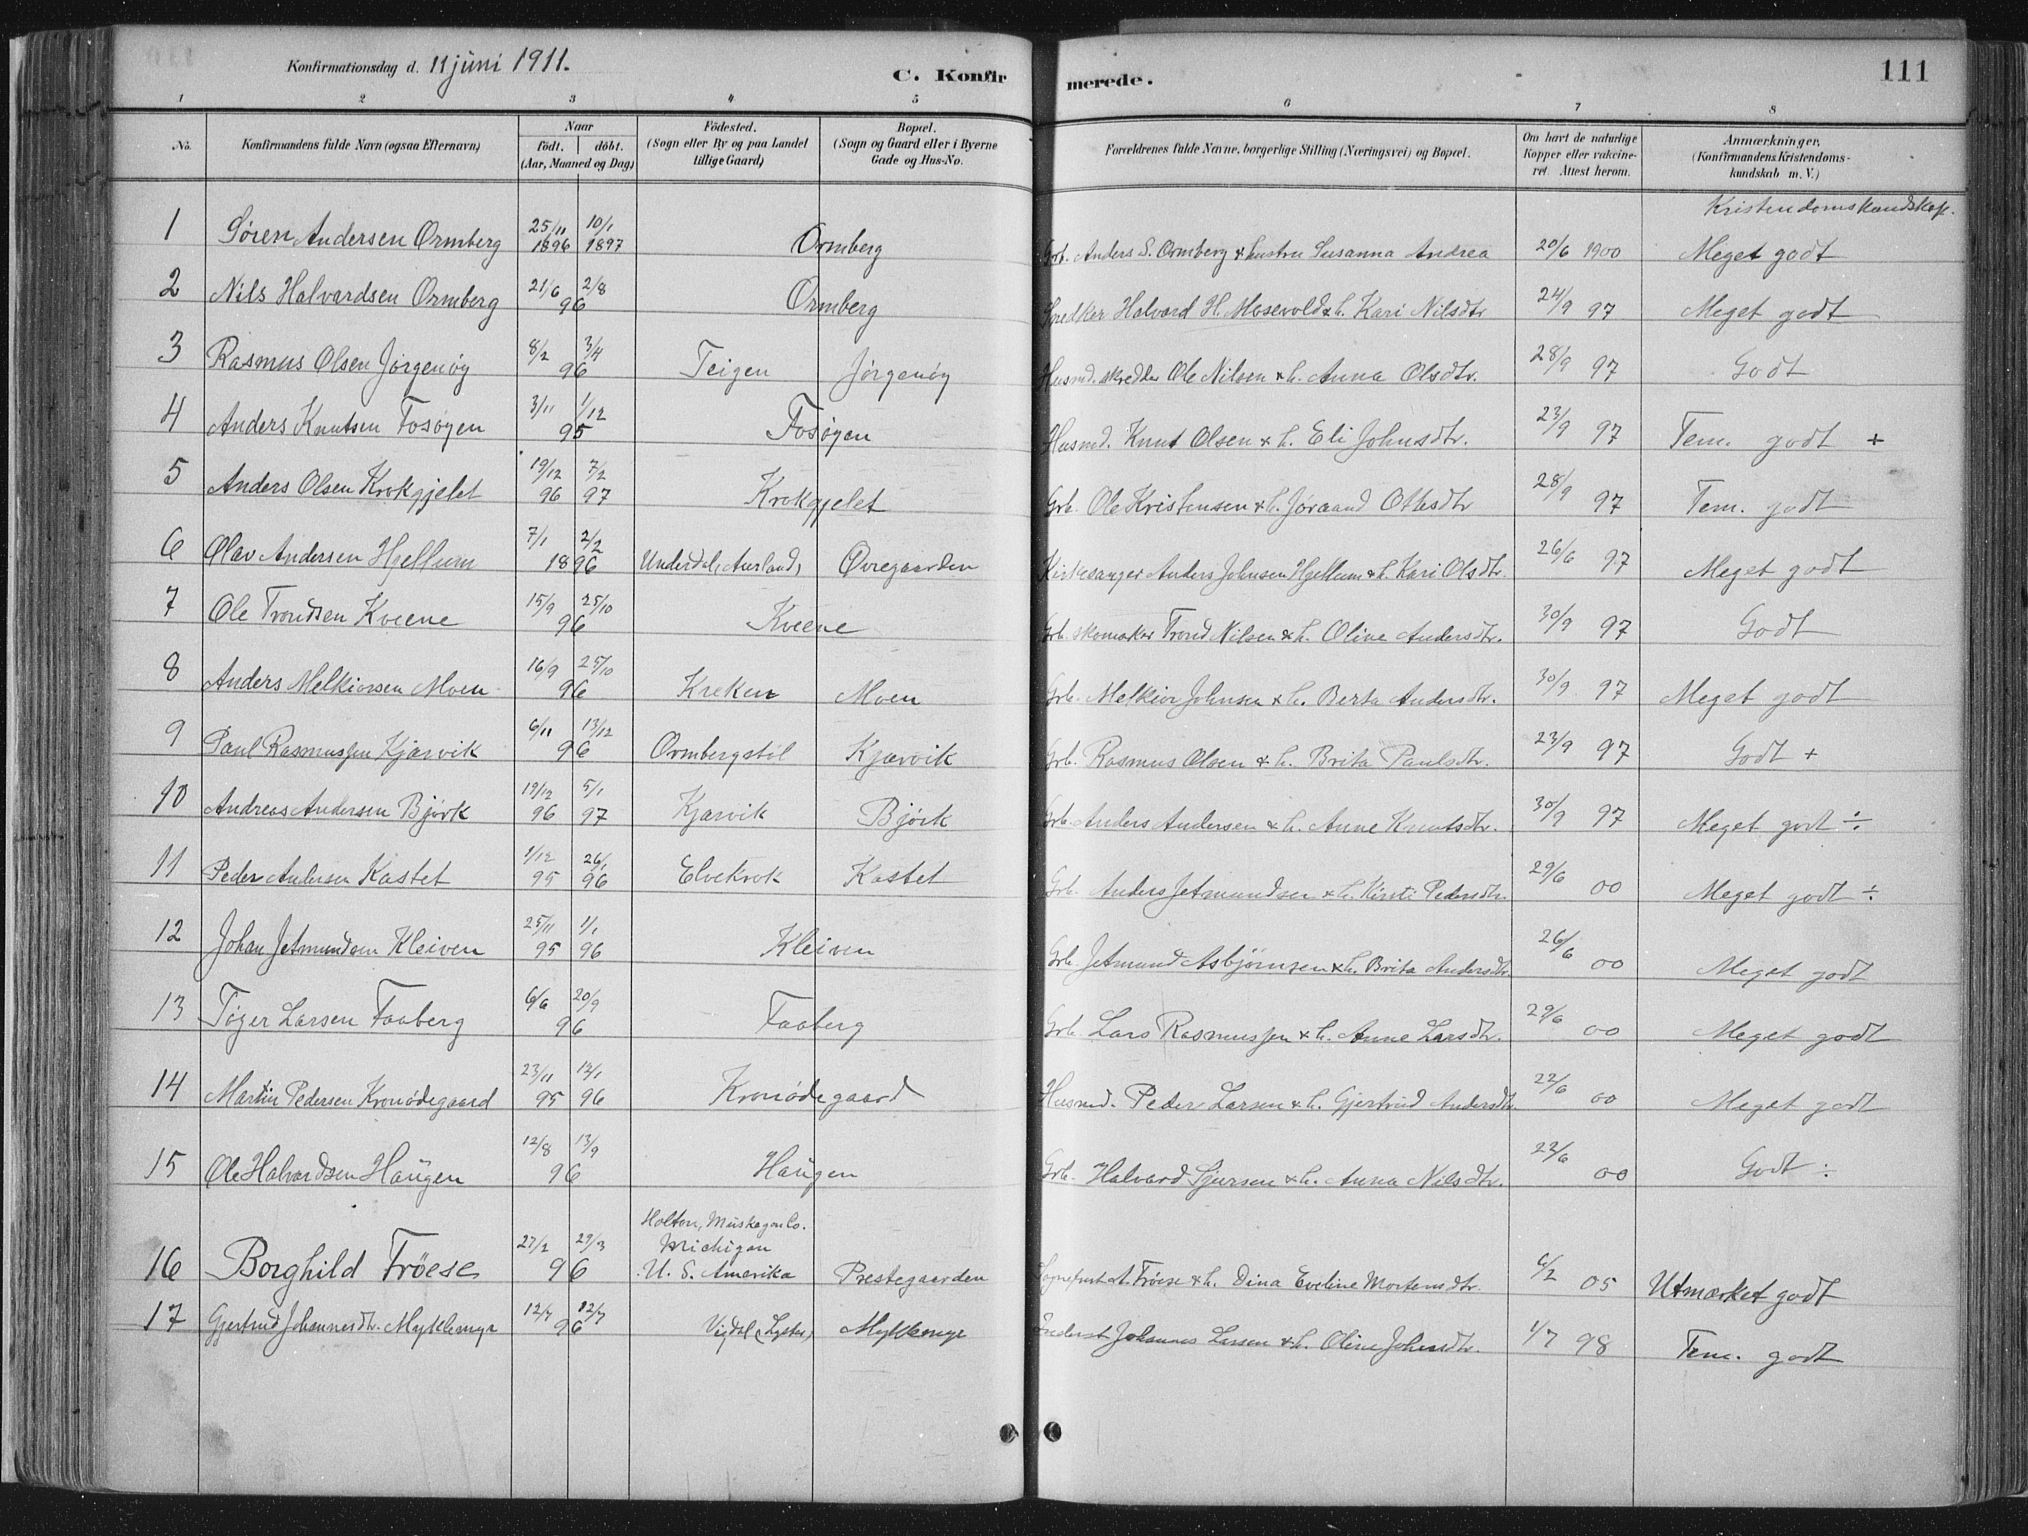 Konfirmationsdag d. 11 juni 1911.
C. Konfir merede. 111
1 2 3 4 5 6 7 8
No. Konfirmandens fulde Navn (ogsaa Efternavn) Naar født. døbt. (Aar, Maaned og Dag) Fødested. (Sogn eller By og paa Landet tillige Gaard) Bopæl. (Sogn og Gaard eller i Byerne Gade og Hus-No. Forældrenes fulde Navne, borgerlige Stilling (Næringsvei) og Bopæl. Om havt de naturlige Kopper eller vakcineret. Attest herom. Anmærkninger, (Konfirmandens Kristendomskundskab m. V.)
Kristendomskundskap.
1 Søren Andersen Ormberg 25/11 1896 10/1 1897 Ormberg Grb. Anders S. Ormberg & hustru Susanna Andrea 20/6 1900 Meget godt
2 Nils Halvardsen Ormberg 21/6 2/8 96 Ormberg Halvard H. Mosevold & h. Kari Nilsdtr 24/9 97 Meget godt
3 Rasmus Olsen Jørgenøy 8/2 3/4 96 Teigen Jørgenøy Husmd. skredder Ole Nilsen & h. Anna Olsdtr. 28/9 97 Godt
4 Anders Knutsen Fosøyen 3/11 1/12 95 Fosøyen Husmd. Knut Olsen & h. Eli Johnsdtr. 23/9 97 Tem. godt +
5 Anders Olsen Krokgjelet 19/12 96 7/2 97 Krokgjelet Grb. Ole Kristensen & h. Jøraand Ottesdtr 28/9 97 Tem. godt
6 Olav Andersen Hjellum 7/1 2/2 1896 Underdal, Aurland, Øvregaarden Kirkesanger Anders Johnsen Hjellum & h. Kari Olsdtr. 26/6 97 Meget godt
7 Ole Trondsen Kveene 15/9 25/10 96 Kveene Grb. skomaker Trond Nilsen & h. Oline Andersdtr. 30/9 97 Godt
8 Anders Melkiorsen Moen 16/9 25/10 96 Kreken Moen Grb. Melkior Johnsen & h. Berta Andersdtr. 30/9 97 Meget godt
9 Paul Rasmussen Kjærvik 6/11 13/12 96 Ormbergstøl Kjærvik Grb. Rasmus Olsen & h. Brita Paulsdtr. 23/9 97 Godt +
10 Andreas Andersen Bjørk 19/12 96 5/1 97 Kjærvik Bjørk Grb. Anders Andersen & h. Anne Knutsdtr. 30/9 97 Meget godt ÷
11 Peder Andersen Kastet 1/12 95 26/1 96 Elvekrok Kastet Grb. Anders Jetmundsen & h. Kirsti Pedersdtr 29/6 00 Meget godt ÷
12 Johan Jetmundsen Kleiven 25/11 95 1/1 96 Kleiven Grb. Jetmund Asbjørnsen & h. Brita Andersdtr 26/6 00 Meget godt
13 Tøger Larsen Faaberg 6/6 20/9 96 Faaberg Grb. Lars Rasmussen & h. Anne Larsdtr. 29/6 00 Meget godt
14 Martin Pedersen Kronødegaard 23/11 95 12/1 96 Kronødegaard Husmd. Peder Larsen & h. Gjertrud Andersdtr. 22/6 00 Meget godt
15 Ole Halvardsen Haugen 12/8 13/9 96 Haugen Grb. Halvard Sjursen & h. Anna Nilsdtr. 22/6 00 Godt ÷
16 Borghild Frøese 27/2 29/3 96 Holton, Muskegon Co. Michigan U. S. Amerika Prestegaarden Sogneprest A. Frøese & h. Dina Eveline Mortensdtr. 6/2 05 Utmærket godt
17 Gjertrud Johannesdtr. Myklemyr 12/7 12/7 96 Vigdal (Lyster) Myklemyr Inderst Johannes Larsen & h. Oline Johnsdtr. 1/7 98 Tem. godt